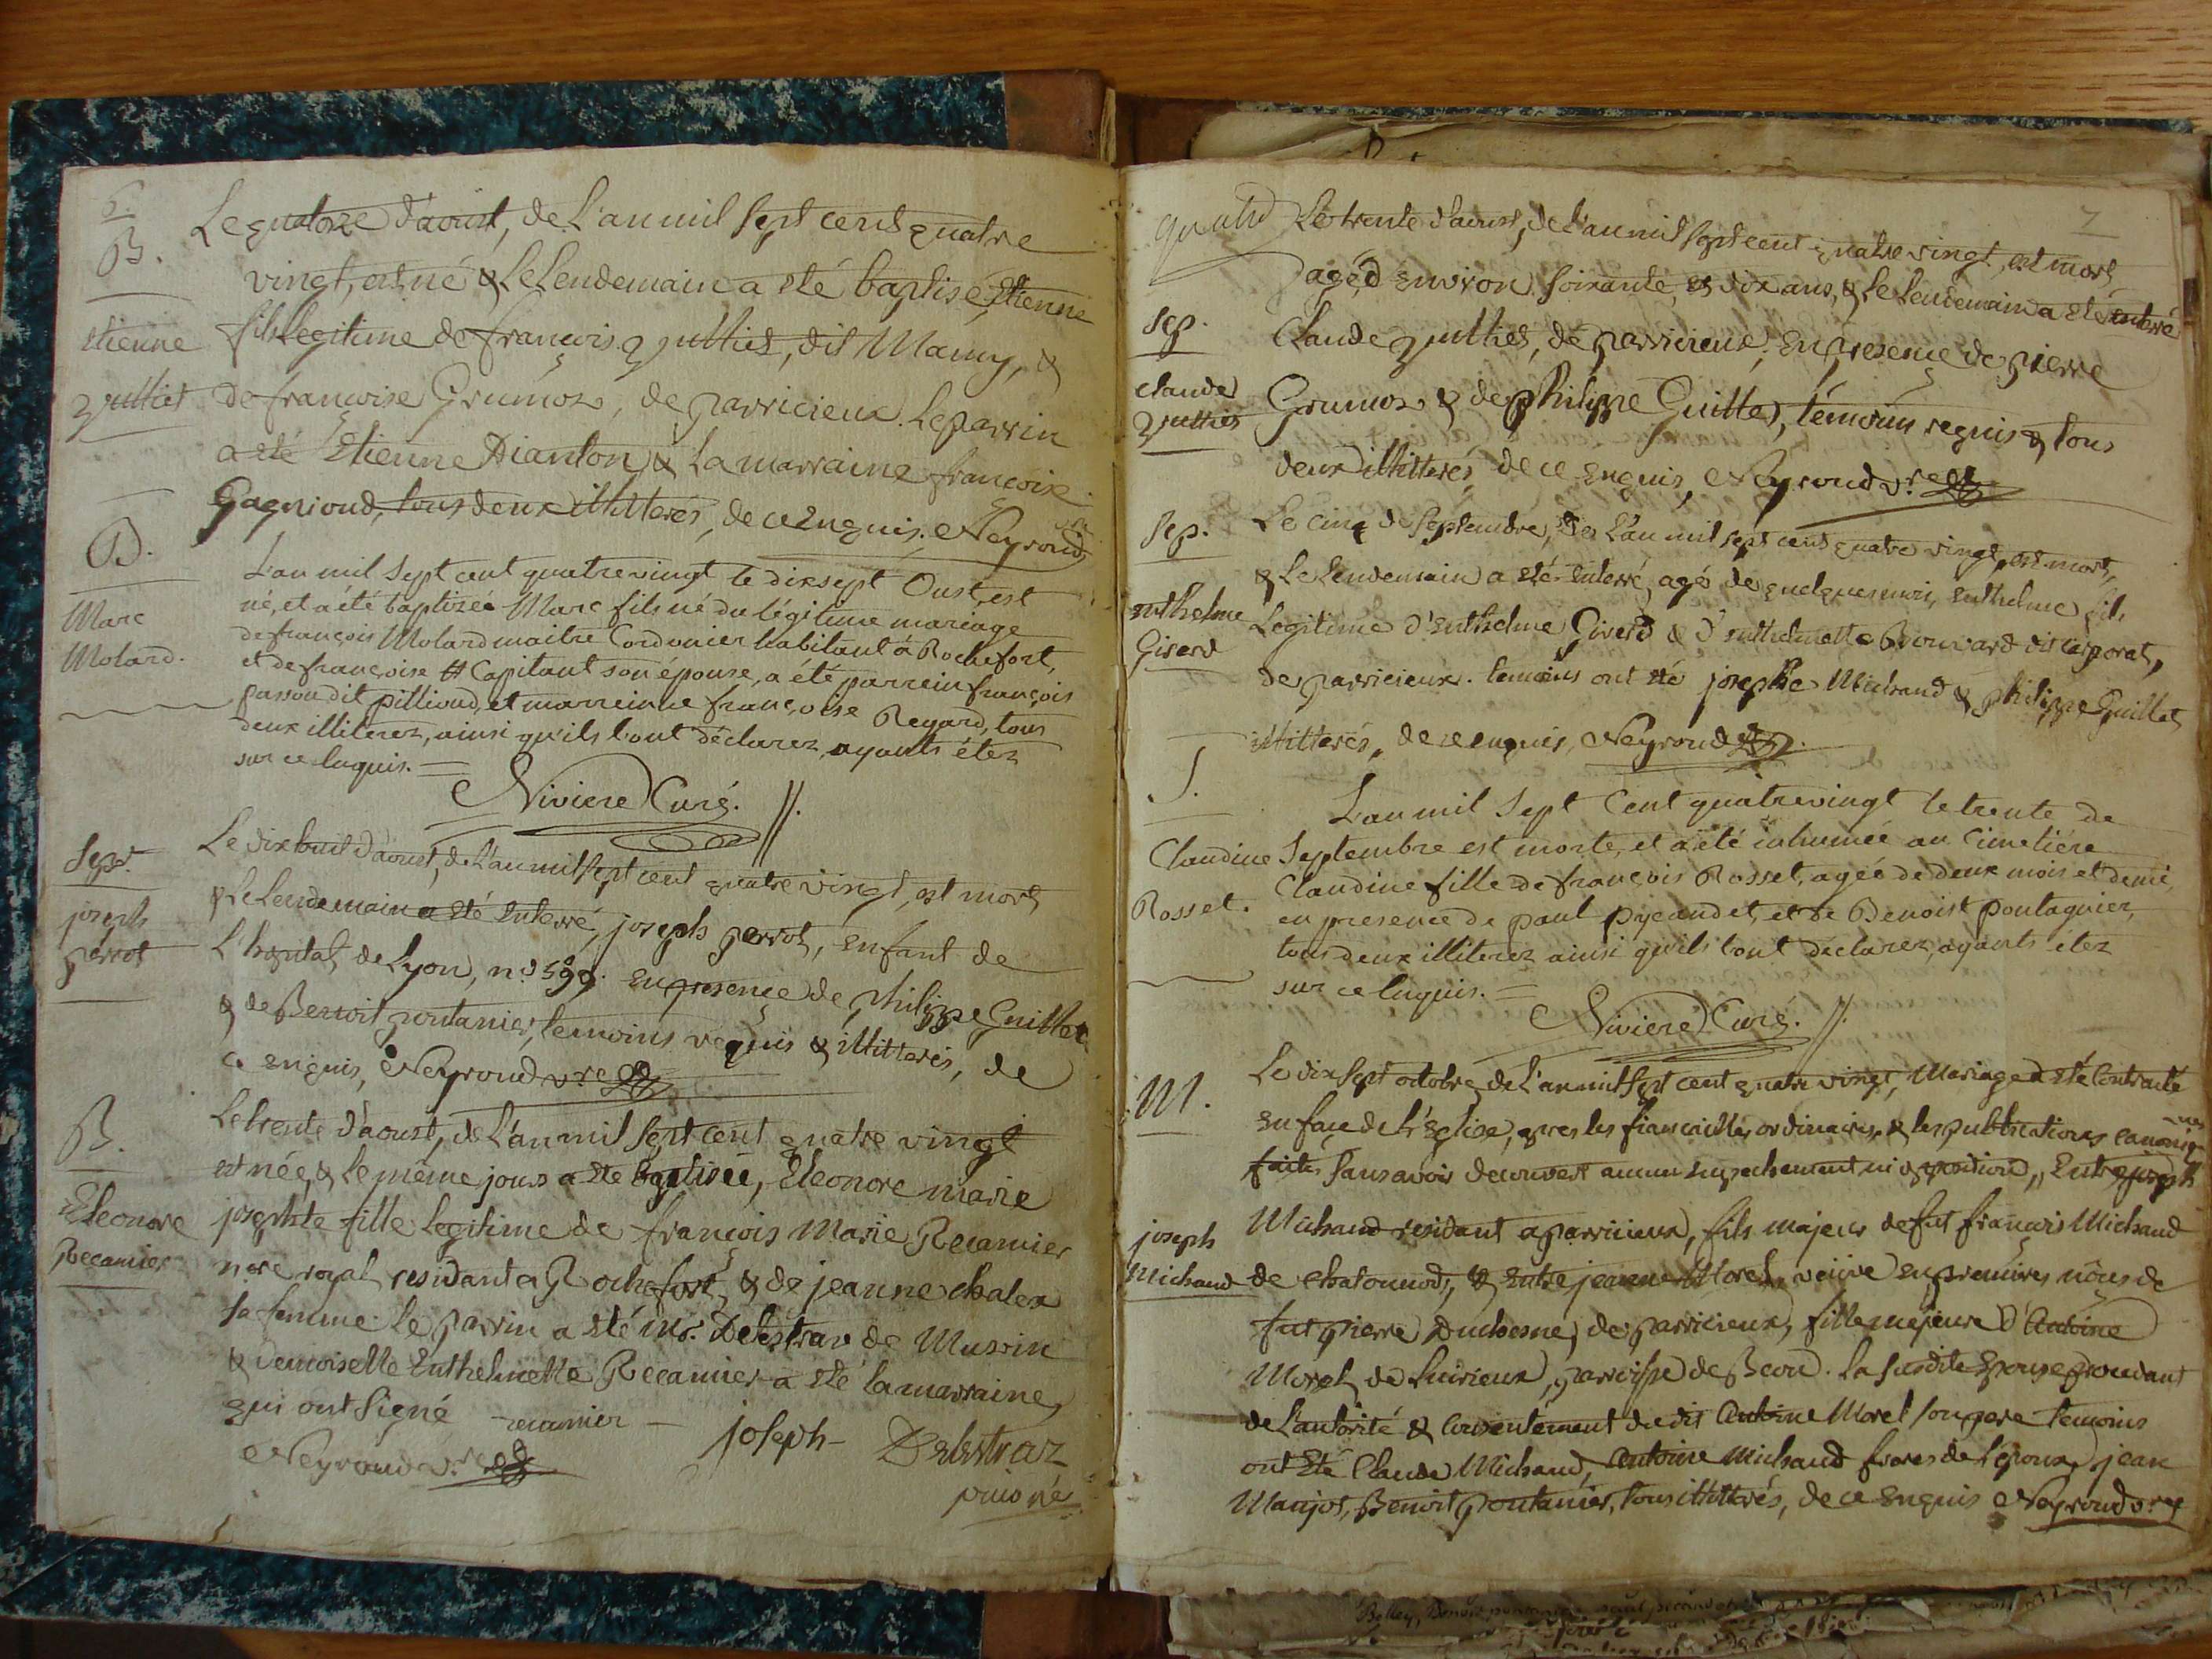 6.
B.
Etienne
Jullies
Le quatorze d'aoust, de L'an mil sept cent quatre
vingt, est né & Le Lendemain a eté baptisé, Etienne
fils Legitime de françois Jullies, dit Mamy, &
de françoise Grumoz, de parricieux. Le parrin
a eté Etienne Dianton & La marraine françoise
Gagnioud, tous deux illitterés, de ce Enquis. Neyroud
B.
Marc
Molard.
L'an mil sept cent quatrevingt le dixsept Oust, est
né, et a été baptizée Marc fils né du légitime mariage
de françois Molard maitre Cordonier habitant à Rochefort,
et de françoise Capitant son épouse, a été parrein françois
passon dit pillioud, et marreinne françoise Regard, tous
deux illiterez, ainsi qu'ils l'ont déclarez, ayants étez
sur ce Inquis. =
Niviere Curé. //.
Sep.
joseph
perrot
Le dix huit d'aoust, de L'an mil sept cent quatre vingt, est mort
& Le Lendemain a eté Enterré, joseph perrot, Enfant de
L'hopital de Lyon, n.o 599. En presence de philippe Guillet
& de Benoit pontanier, temoins requis & illitterés, de
ce enquis, Neyroud v.re
B.
Eleonore
Recamier
Le trente d'aoust, de L'an mil sept cent quatre vingt
est née, & Le même jours a eté baptisée, Eleonore marie
josephte fille Legitime de françois Marie Recamier
n.re royal residant a Rochefort, & de jeanne chaley
sa femme. Le parrin a eté mr. Delestraz de Mussin
& demoiselle Enthelmette Recamier a eté la marraine,
qui ont Signé recamier — joseph - Delestraz
Neyroud v.re
puisné
7
Le trente d'aoust, de L'an mil sept cent quatre vingt, est mort
agé d'environ soixante et dix ans, & Le Lendemain a eté enterré
Sep.
Claude
Jullies
Claude Jullies, de parricieux, En presence de pierre
Grumoz & de philippe Guillet, témoins requis & tous
deux illitterés de ce Enquis, Neyroud v.re
Sep.
Enthelme
Girerd
Le cinq de Septembre, de L'an mil sept cent quatre vingt, est mort,
& Le Lendemain a eté Enterré, agé de quelques mois, Enthelme fils
Legitime d'Enthelme Girerd & d'Enthelmette Brouvard dit Caporat,
de parricieux. temoins ont eté josephe Michaud & philippe Guillet
illitterés, de ce enquis, Neyroud
S.
Claudine
Rosset.
L'an mil Sept Cent quatrevingt le trente de
Septembre est morte, et a été inhumée au Cimetiére
Claudine fille de françois Rosset, agée de deux mois et demi,
en presence de paul pycaudet, et de Benoist pontagnier,
tous deux illiterez ainsi qu'ils l'ont déclarez, ayants étez
sur ce Inquis. =
Niviere Curé. //.
M.
joseph
Michaud
Le dix sept octobre, de L'an mil sept cent quatre vingt, Mariage a eté Contracté
En face de L'Eglise, apres les fiançailles ordinaires, & les publications canoniques
faites sans avoir decouvert aucun Empechement ni opposition, Entre joseph
Michaud residant a parricieux, fils majeur de fut françois Michaud
de Chatonnod, & Entre jeanne Morel, veuve en premieres nôces de
fut pierre Duchesne, de parricieux, fille majeure d'Antoine
Morel, de Luirieux, parroisse de Beon. La susdite Epouse procedant
de L'autorité & Consentement du dit Antoine Morel son pere temoins
ont Eté Claude Michaud, Antoine Michaud freres de L'époux, jean
Manjot, Benoit pontanier, tous illitterés, de ce Enquis Neyroud v.re